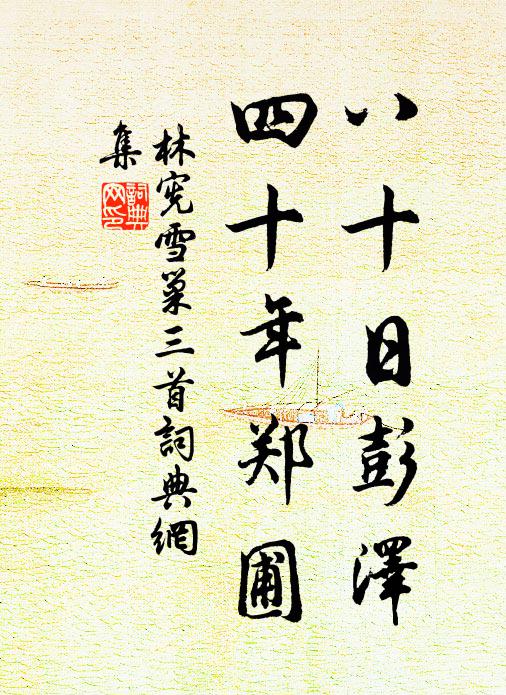 八十日彭澤
四十年郑圃
林宪雪巢三首詞典網
集
詞典
网印